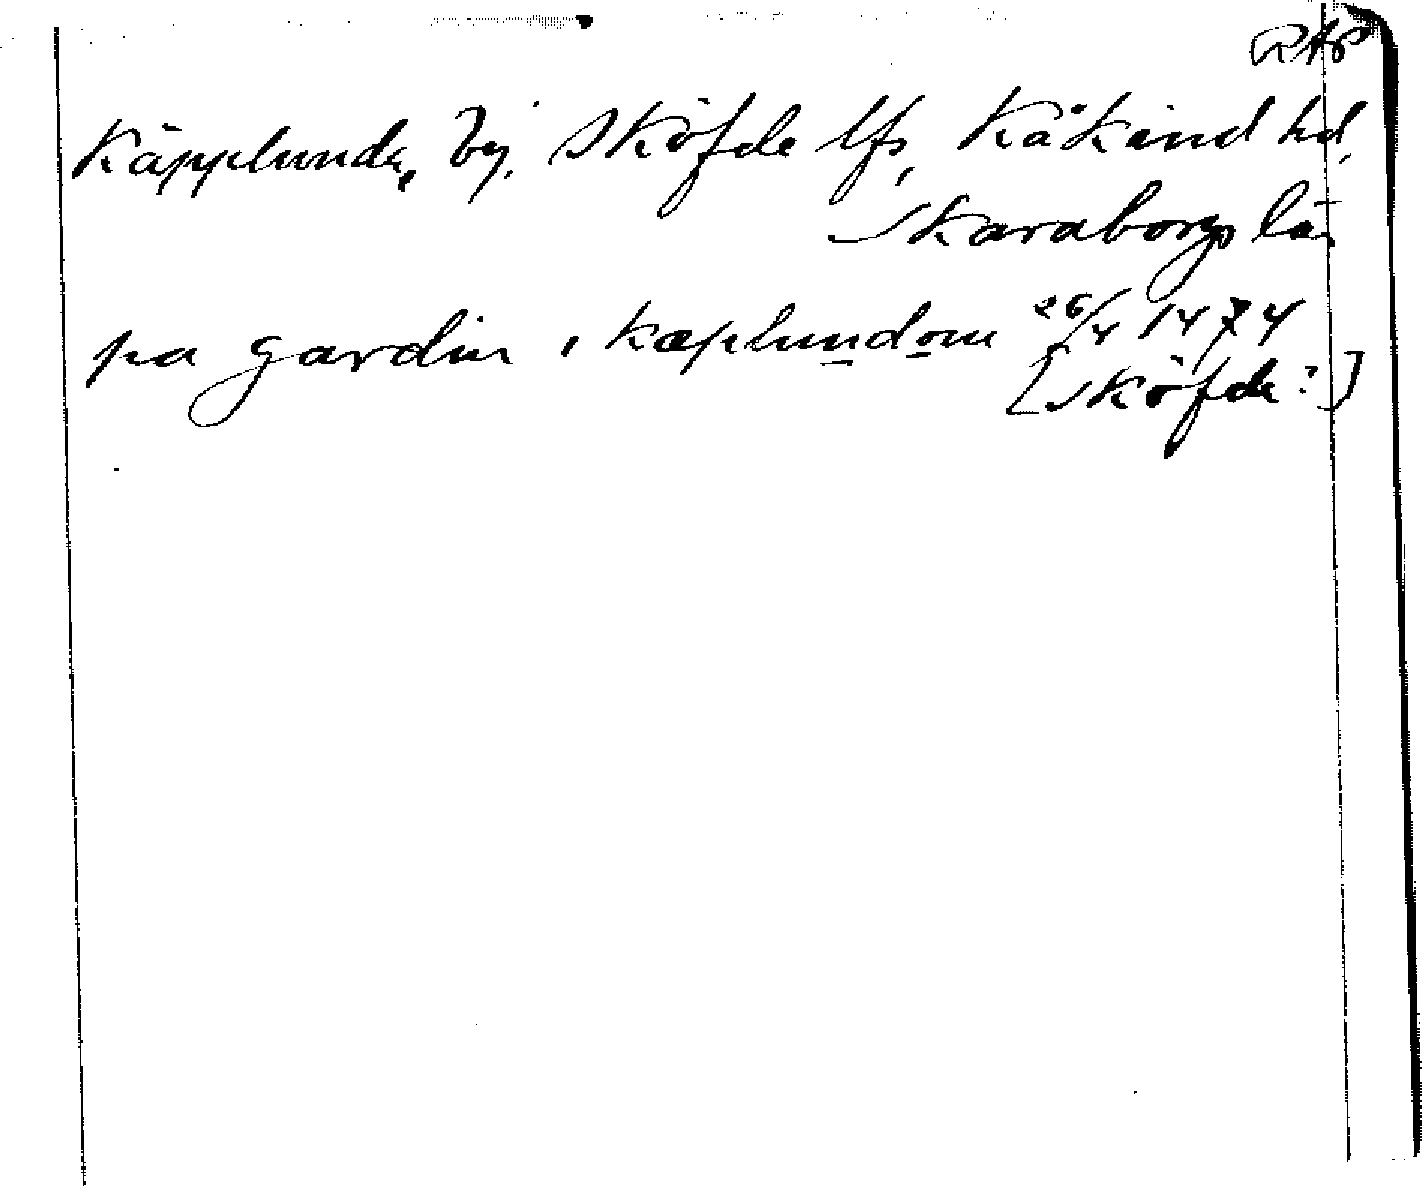 RAP
Käpplunda, by, Sköfde lfs, Kåkind hd,
Skaraborgs län
pa gardin i kæplundom 26/4 1474
[Sköfde?]